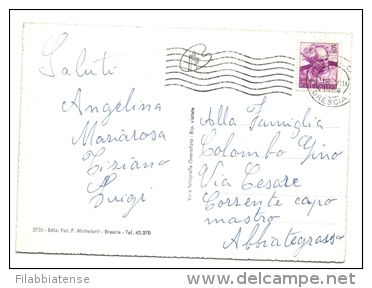 Saluti
Angelina
Mariarosa
Tiziano
Luigi
Alla Famiglia
Colombo Gino
Via Cesare
Corrente capo
mastro
Abbiategrasso
BRESCIA
Vera fotografia Omniafoto - Rip. vietata
3730 - Ediz. Fot. F. Micheletti - Brescia - Tel. 43.370
Filabbiatense
delcampe.net